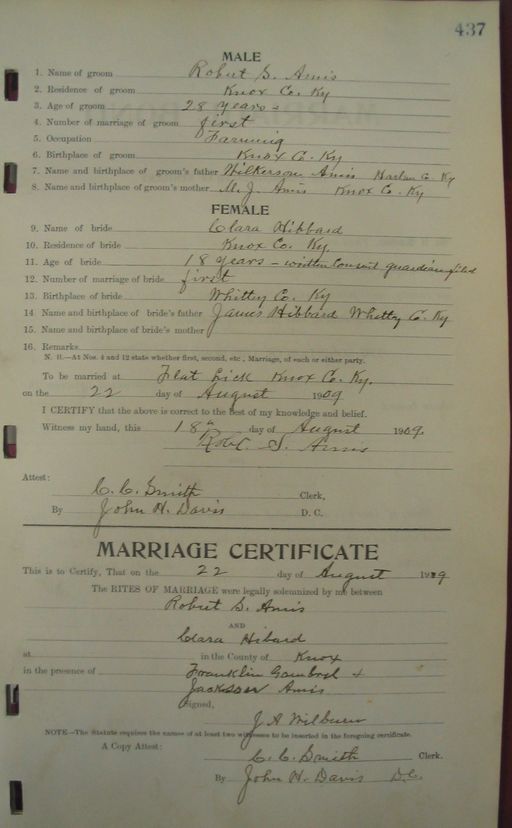 437
MALE
1. Name of groom Robert S. Amis
2. Residence of groom Knox Co. Ky
3. Age of groom 28 years
4. Number of marriage of groom first
5. Occupation Farming
6. Birthplace of groom Knox Co. Ky
7. Name and birthplace of groom's father Wilkerson Amis Harlan Co. Ky
8. Name and birthplace of groom's mother M. J. Amis Knox Co. Ky
FEMALE
9. Name of bride Clara Hibbard
10. Residence of bride Knox Co. Ky
11. Age of bride 18 years - written consent guardian filed
12. Number of marriage of bride first
13. Birthplace of bride Whitley Co. Ky
14. Name and birthplace of bride's father James Hibbard Whitley Co. Ky
15. Name and birthplace of bride's mother
16. Remarks
N. B.—At Nos. 4 and 12 state whether first, second, etc., Marriage, of each or either party.
To be married at Flat Lick Knox Co. Ky.
on the 22 day of August 1909
I CERTIFY that the above is correct to the best of my knowledge and belief.
Witness my hand, this 18 day of August 1909.
Robt. S. Amis
Attest:
C. C. Smith Clerk,
By John H. Davis D. C.
MARRIAGE CERTIFICATE
This is to Certify, That on the 22 day of August 1909
The RITES OF MARRIAGE were legally solemnized by me between
Robert S. Amis
AND
Clara Hibard
at in the County of Knox
in the presence of Franklin Gambrel +
Jackson Amis
Signed,
J. A. Wilburn
NOTE—The Statute requires the names of at least two witnesses to be inserted in the foregoing certificate.
A Copy Attest:
C. C. Smith Clerk.
By John H. Davis D.C.